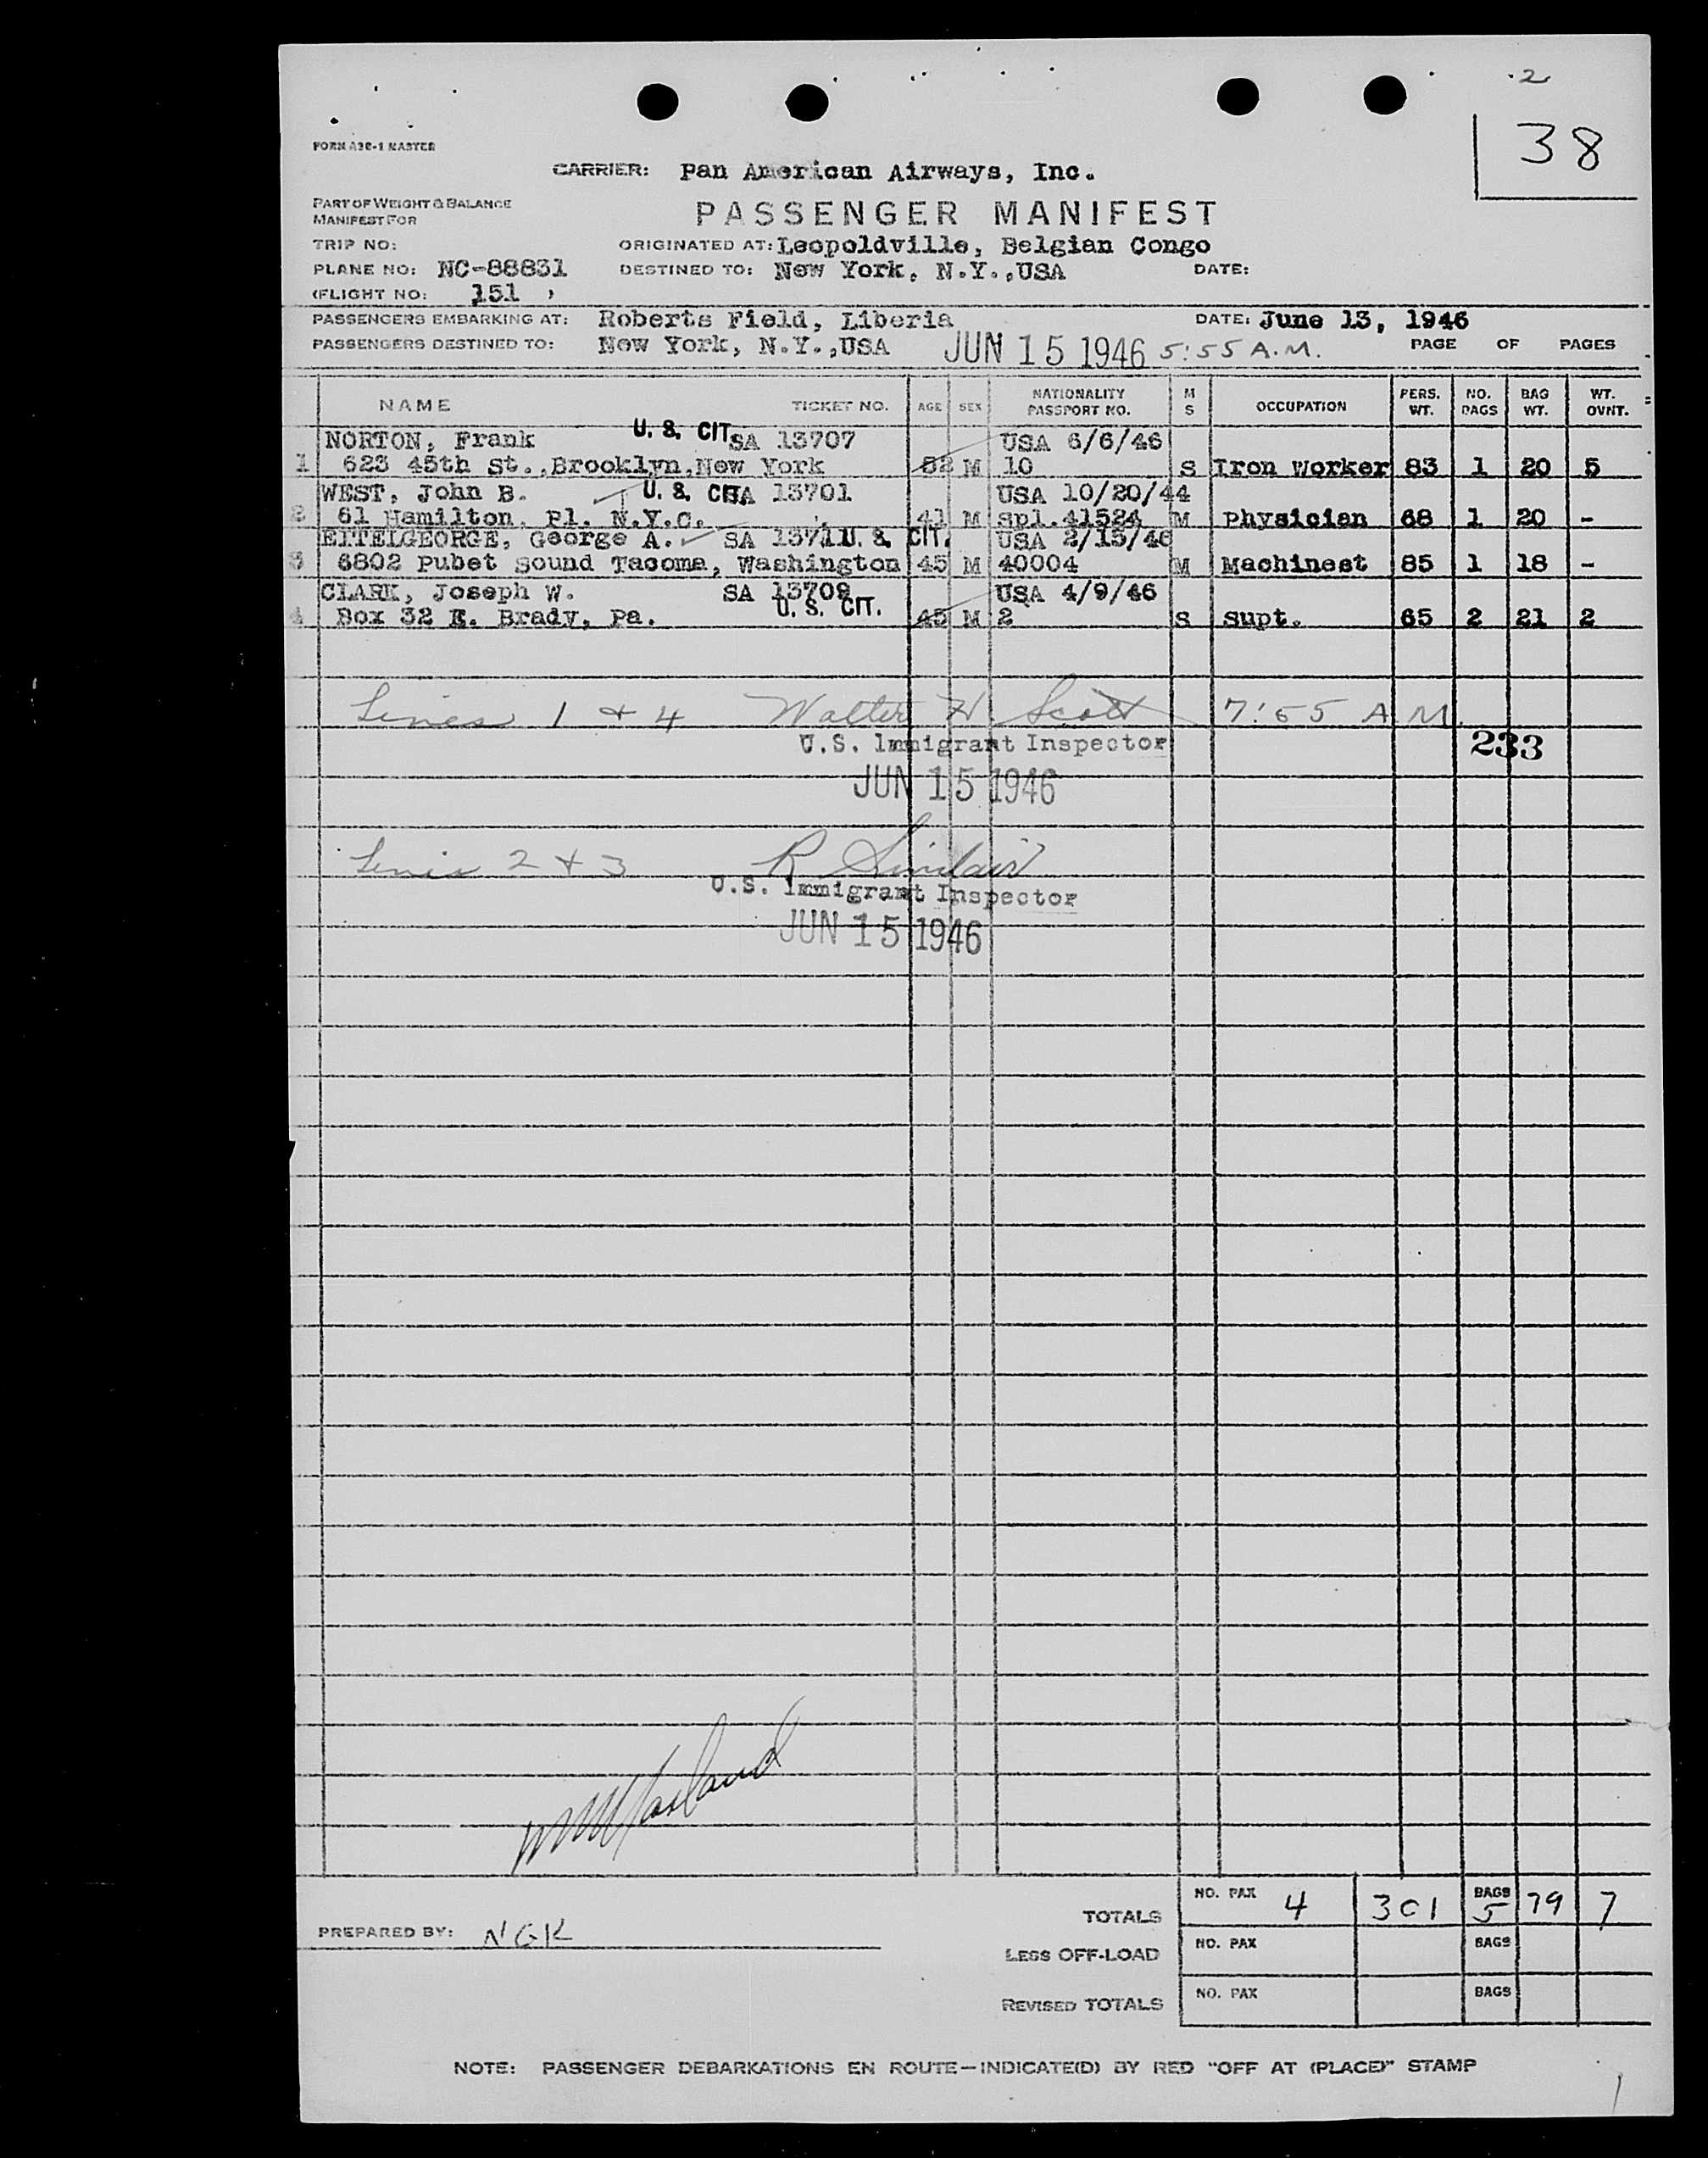 2
38
FORM A30-1 MASTER
CARRIER: Pan American Airways, Inc.
PART OF WEIGHT & BALANCE
MANIFEST FOR
PASSENGER MANIFEST
TRIP NO: ORIGINATED AT: Leopoldville, Belgian Congo
PLANE NO: NC-88831 DESTINED TO: New York, N.Y.,USA DATE:
(FLIGHT NO: 151 )
PASSENGERS EMBARKING AT: Roberts Field, Liberia DATE: June 13, 1946
PASSENGERS DESTINED TO: New York, N.Y.,USA JUN 15 1946 5:55 A.M. PAGE OF PAGES
NAME TICKET NO. AGE SEX NATIONALITY PASSPORT NO. M S OCCUPATION PERS. WT. NO. BAGS BAG WT. WT. OVNT.
NORTON, Frank U. S. CIT. SA 13707 USA 6/6/46
1 623 45th St.,Brooklyn,New York 52 M 10 S Iron Worker 83 1 20 5
WEST, John B. U. S. CIT. SA 13701 USA 10/20/44
2 61 Hamilton Pl. N.Y.C. 41 M spl.41524 M Physician 68 1 20 -
EITELGEORGE, George A. SA 13711 U. S. CIT. USA 2/15/46
3 6802 Pubet Sound Tacoma, Washington 45 M 40004 M Machinest 85 1 18 -
CLARK, Joseph W. SA 13709 U. S. CIT. USA 4/9/46
4 Box 32 E. Brady, Pa. 45 M 2 S Supt. 65 2 21 2
Lines 1 & 4 Walter H. Scott 7:55 A.M.
U.S. Immigrant Inspector 233
JUN 15 1946
Lines 2 & 3 R Sinclair
U.S. Immigrant Inspector
JUN 15 1946
TOTALS NO. PAX 4 301 BAGS 5 79 7
PREPARED BY: NGK
LESS OFF-LOAD NO. PAX BAGS
REVISED TOTALS NO. PAX BAGS
NOTE: PASSENGER DEBARKATIONS EN ROUTE—INDICATE(D) BY RED "OFF AT (PLACE)" STAMP